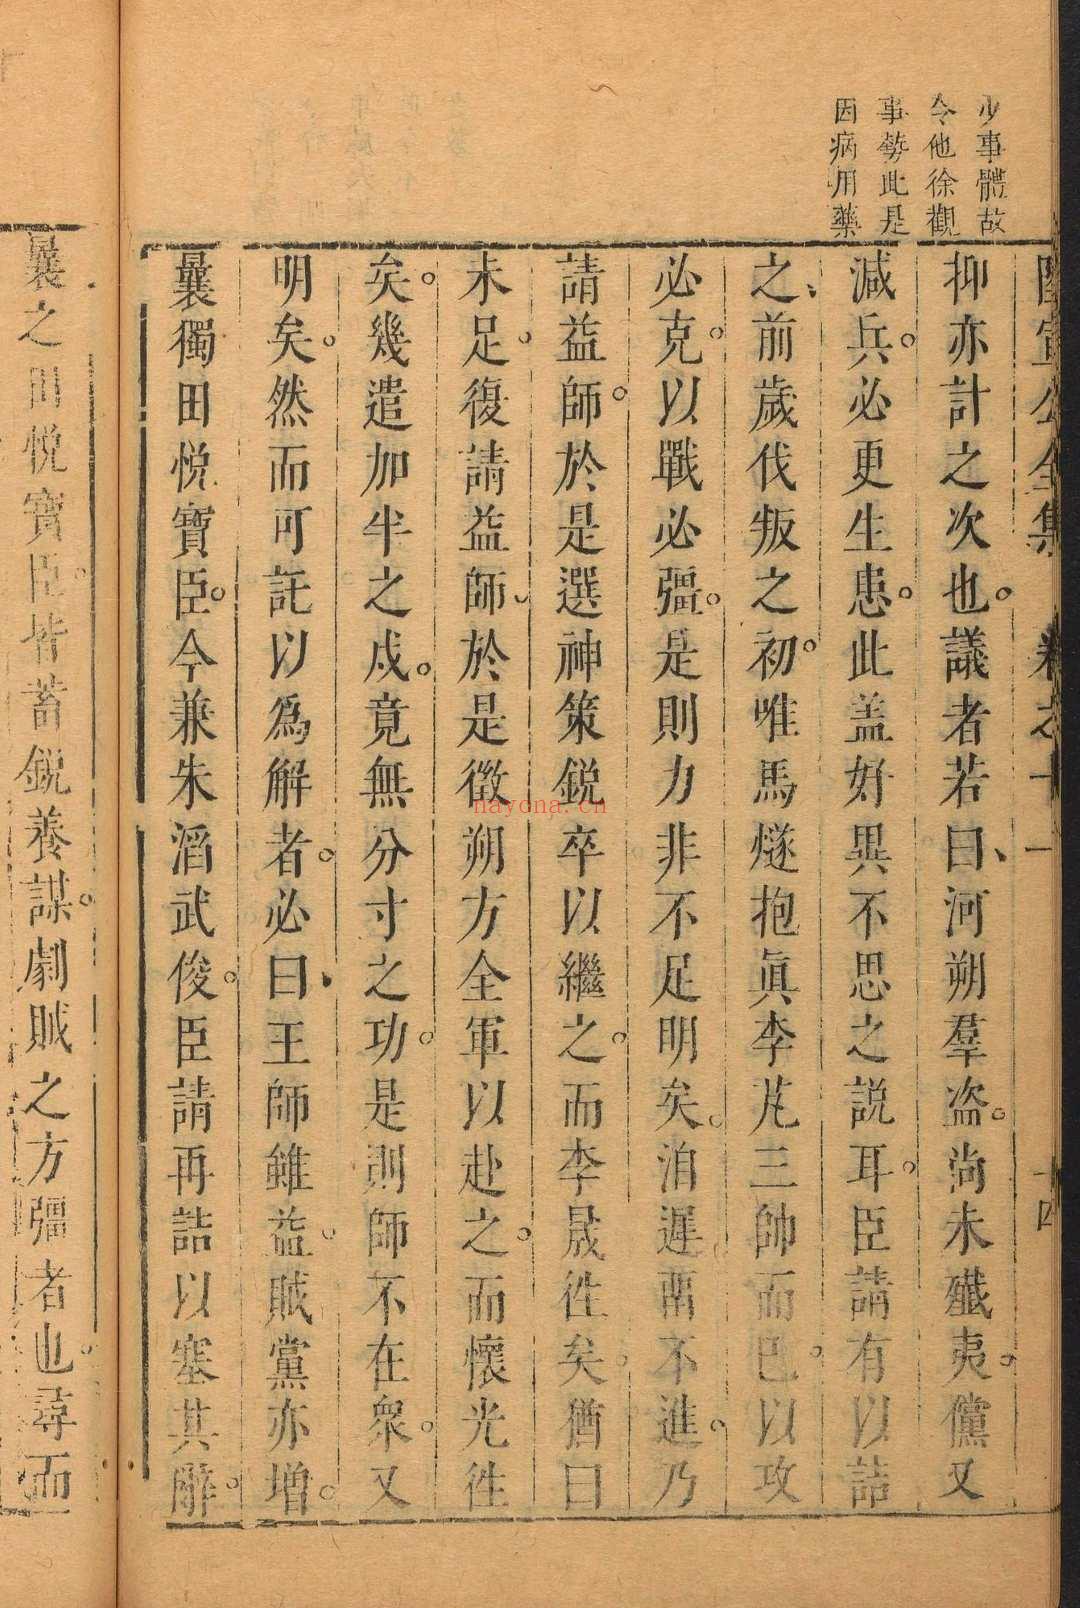 少事體故
令他徐觀
事勢此是
因病用藥
宣公全集　卷之十一　十四
抑亦計之次也。議者若曰、河朔羣盗。尚未殱夷。儻又
減兵。必更生患。此盖好異不思之説耳。臣請有以詰
之、前歲伐叛之初。唯馬燧抱眞李芃三帥而巳。以攻
必克。以戰必彊。是則力非不足明矣。洎遲畱不進。乃
請益師。於是選神策鋭卒以繼之。而李晟徃矣。猶曰
未足。復請益師、於是徴朔方全軍以赴之。而懐光徃
矣。幾遣加半之戍。竟無分寸之功。是則師不在衆。又
明矣。然而可託以爲解者。必曰、王師雖益。賊黨亦增。
曩獨田悅寶臣。今兼朱滔武俊。臣請再詰以塞其辭。
曩之田悅寶臣。皆蓄鋭養謀。劇賊之方彊者也。尋而
nayona.cn